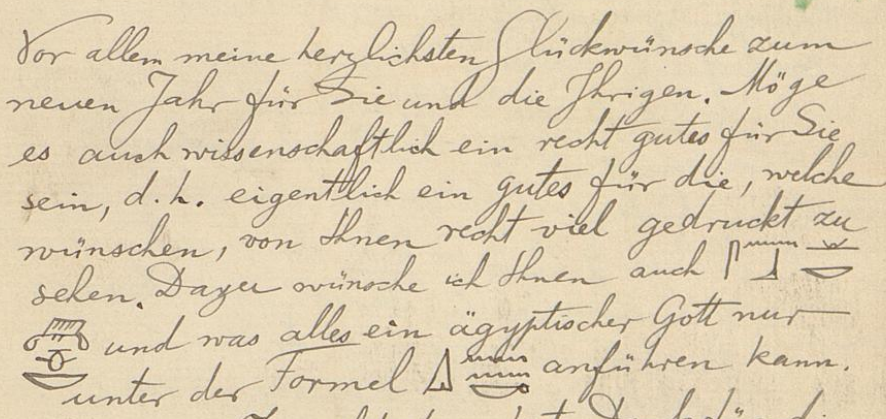 Vor allem meine herzlichsten Glückwünsche zum
neuen Jahr für Sie und die Ihrigen. Möge
es auch wissenschaftlich ein recht gutes für Sie
sein, d. h. eigentlich ein gutes für die, welche
wünschen, von Ihnen recht viel gedruckt zu
sehen. Dazu wünsche ich Ihnen auch
und was alles ein ägyptischer Gott nur
unter der Formel anführen kann.